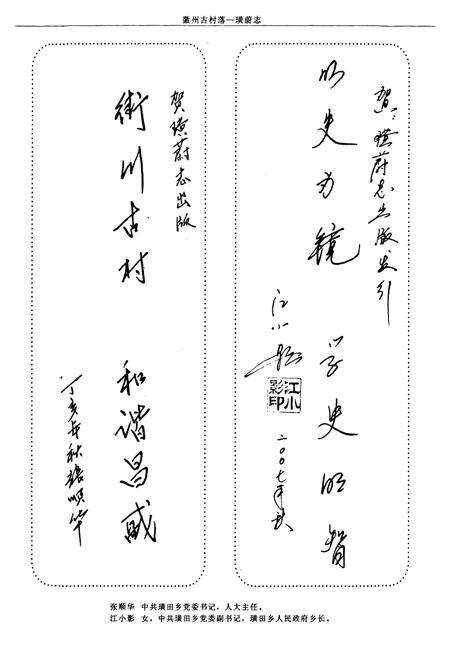 徽州古村落—璜蔚志
贺:璜蔚志出版发行
以史为镜 学史明智
江小影
江小影印
二〇〇七年秋
贺璜蔚志出版
川古村 和谐昌盛
丁亥年秋张顺华
张顺华 中共璜田乡党委书记,人大主任。
江小影 女,中共璜田乡党委副书记,璜田乡人民政府乡长。